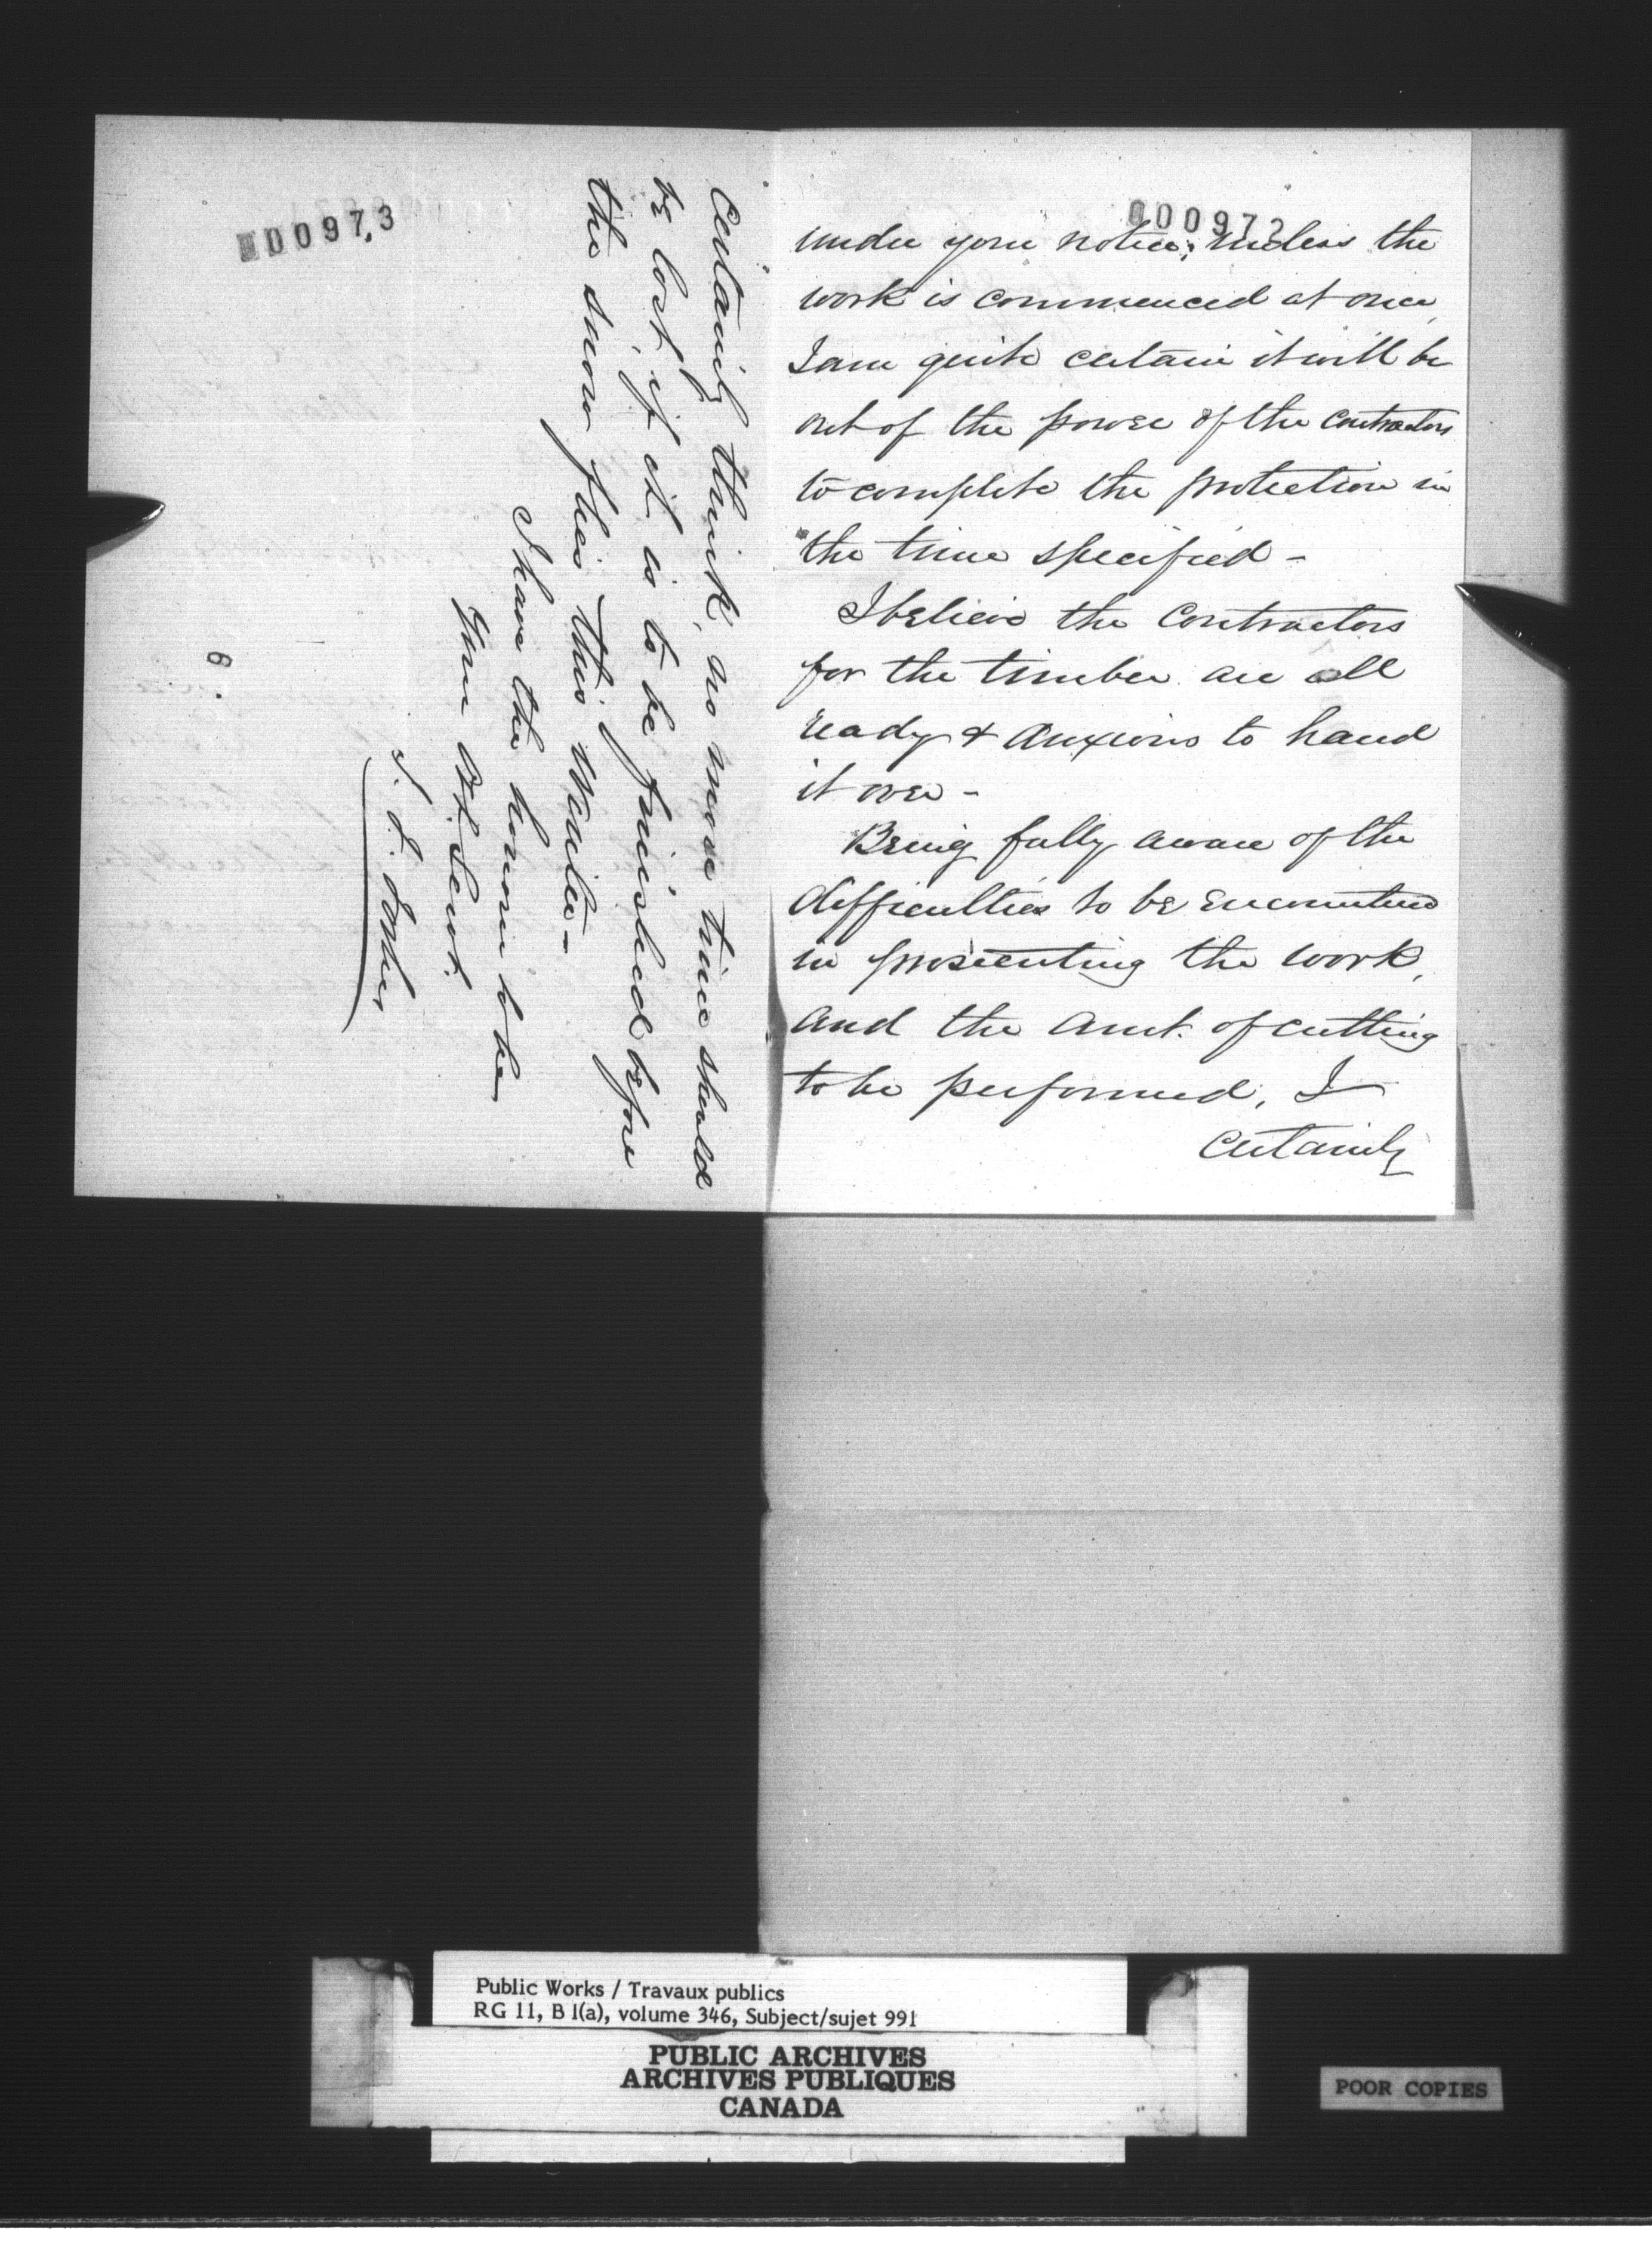 000972
under your notice; unless the
work is commenced at once,
I am quite certain it will be
out of the power of the contractors
to complete the protection in
the time specified -
I believe the Contractors
for the timber are all
ready & anxious to hand
it over -
Being fully aware of the
difficulties to be encountered
in prosecuting the work,
and the amt. of cutting
to be performed, I
certainly
00973
certainly think, no more time should
be lost, if it is to be finished before
the snow flies this Winter -
I have the honor to be
Your Obt. Servt.
6.
Public Works / Travaux publics
RG 11, B 1(a), volume 346, Subject/sujet 991
PUBLIC ARCHIVES
ARCHIVES PUBLIQUES
CANADA
POOR COPIES